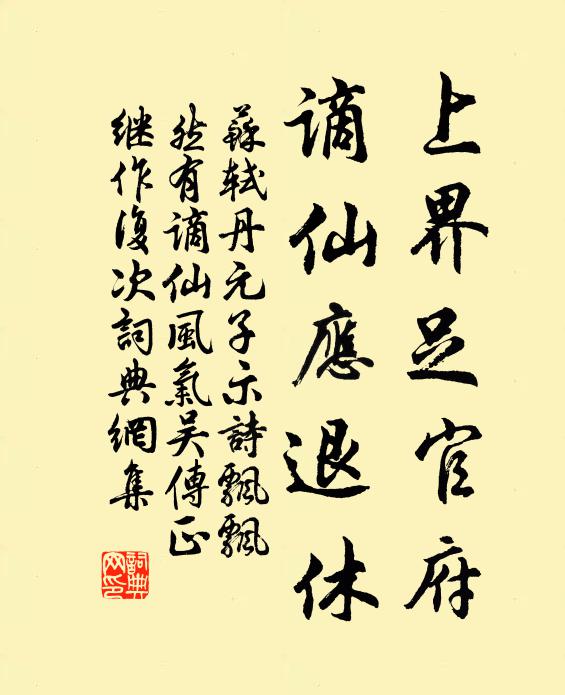 上界足官府
謫仙應退休
蘇軾丹元子示詩飄飄
然有謫仙風氣吴傳正
继作復次詞典網集
詞典
网印